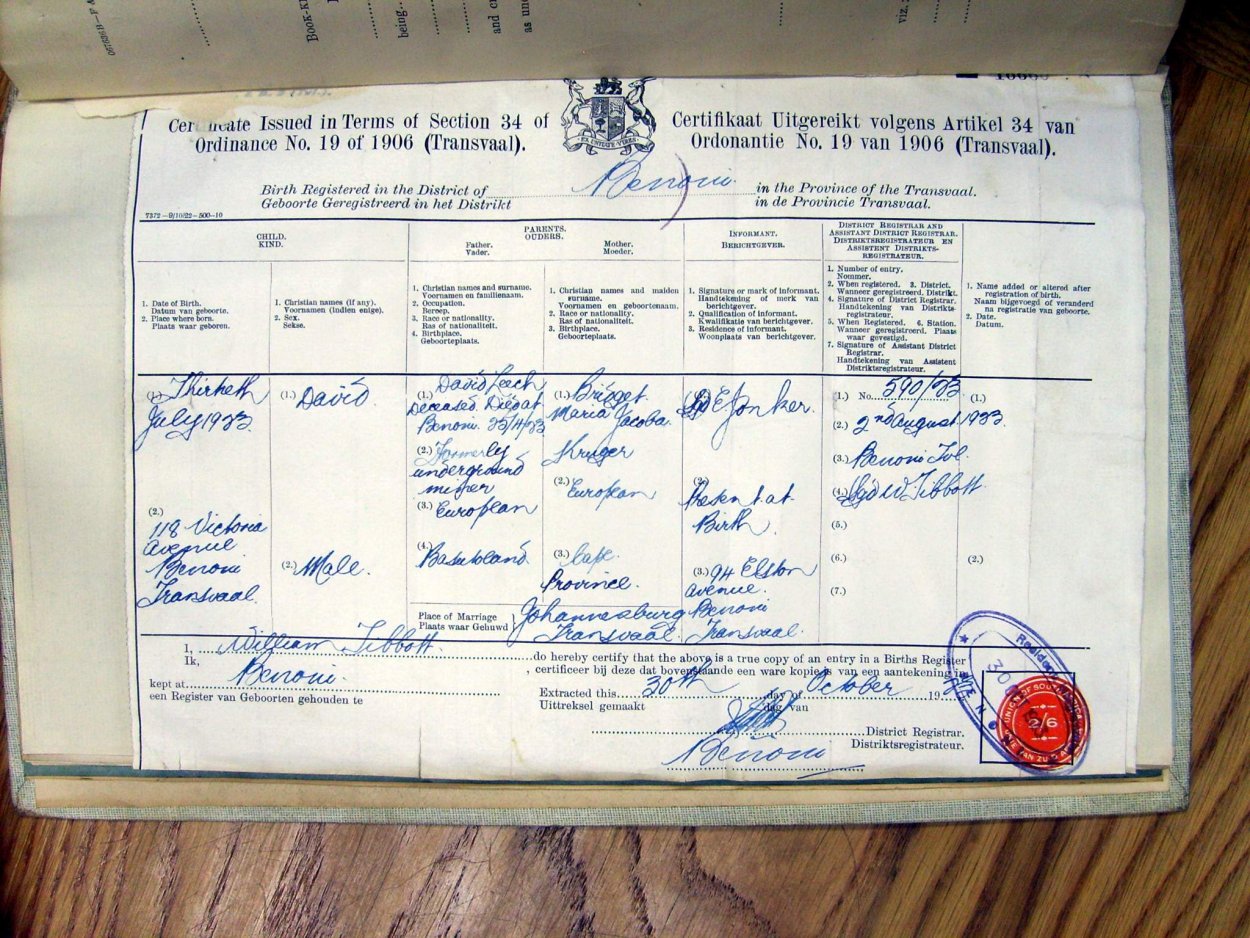 Book-k
being
and cr
as unc
viz.
Certificate Issued in Terms of Section 34 of
Ordinance No. 19 of 1906 (Transvaal).
EX UNITATE VIRES
Certifikaat Uitgereikt volgens Artikel 34 van
Ordonantie No. 19 van 1906 (Transvaal).
Birth Registered in the District of Benoni in the Province of the Transvaal.
Geboorte Geregistreerd in het Distrikt in de Provincie Transvaal.
7372—9/10/22—500—10
CHILD.
KIND.
PARENTS.
OUDERS.
Father.
Vader.
Mother.
Moeder.
INFORMANT.
BERICHTGEVER.
DISTRICT REGISTRAR AND
ASSISTANT DISTRICT REGISTRAR.
DISTRIKTSREGISTRATEUR EN
ASSISTENT DISTRIKTS-
REGISTRATEUR.
1. Date of Birth.
Datum van geboorte.
2. Place where born.
Plaats waar geboren.
1. Christian names (if any).
Voornamen (indien enige).
2. Sex.
Sekse.
1. Christian names and surname.
Voornamen en familienaam.
2. Occupation.
Beroep.
3. Race or nationality.
Ras of nationaliteit.
4. Birthplace.
Geboorteplaats.
1. Christian names and maiden
surname.
Voornamen en geboortenaam.
2. Race or nationality.
Ras of nationaliteit.
3. Birthplace.
Geboorteplaats.
1. Signature or mark of informant.
Handtekening of merk van
berichtgever.
2. Qualification of informant.
Kwalifikatie van berichtgever.
3. Residence of informant.
Woonplaats van berichtgever.
1. Number of entry.
Nommer.
2. When registered. 3. District.
Wanneer geregistreerd. Distrikt.
4. Signature of District Registrar.
Handtekening van
Distriktsregistrateur.
5. When Registered. 6. Station.
Wanneer geregistreerd. Plaats
waar gevestigd.
7. Signature of Assistant District
Registrar.
Handtekening van Assistent
Distriktsregistrateur.
1. Name added or altered after
registration of birth.
Naam bijgevoegd of veranderd
na registratie van geboorte.
2. Date.
Datum.
(1.) Thirteth
July 1933
(2.)
118 Victoria
Avenue
Benoni
Transvaal.
(1.) David
(2.) Male.
(1.) David Leech
Deceased. Died at
Benoni. 25/4/33
(2.) Formerly
underground
miner
(3.) European
(4.) Basutoland
(1.) Bridget
Maria Jacoba.
Kruger
(2.) European
(3.) Cape
Province.
Place of Marriage
Plaats waar Gehuwd
Johannesburg
Transvaal.
(1.) Sgd E. Jonker.
(2.)
Present at
Birth
(3.) 94 Elston
Avenue.
Benoni
Transvaal.
(1.) No. 590/33
(2.) 2nd August 1933.
(3.) Benoni Tvl.
(4.) Sgd W Tibbott
(5.)
(6.)
(7.)
(1.)
(2.)
I, William Tibbott. do hereby certify that the above is a true copy of an entry in a Births Register
Ik, , certificeer bij deze dat bovenstaande een ware kopie is van een aantekening in
kept at Benoni.
een Register van Geboorten gehouden te
Extracted this 30th day of October 19
Uittreksel gemaakt dag van
District Registrar.
Distriktsregistrateur.
Benoni
UNION OF SOUTH AFRICA
2/6
UNIE VAN ZUID AFRIKA